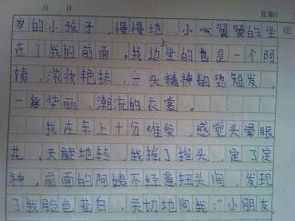 月 日 星期
岁的小孩子,慢慢地,小心翼翼的坐
在了我的前面。我边上坐的也是一个阿
姨,浓妆艳抹,一头精神的短发,
一身华丽,潮流的衣裳。
我在车上十分难受,感觉头晕眼
花,天旋地转,我摇了摇头,定了定
神。前面的阿姨不经意扭头间,发现
了我脸色苍白,关切地问我:“小朋友